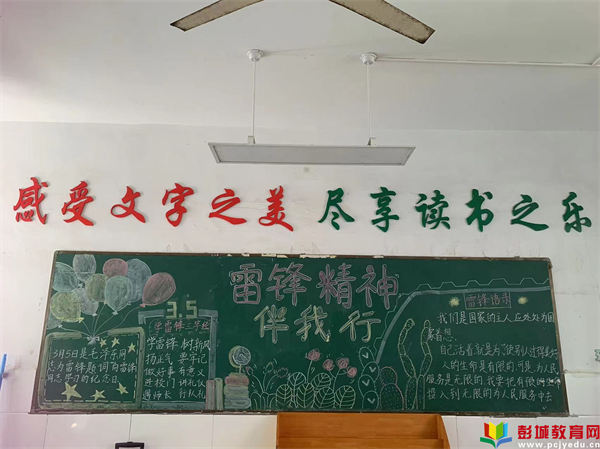 感受文字之美 尽享读书之乐
雷锋精神
伴我行
3.5
学雷锋三字经
学雷锋 树新风
扬正气 要牢记
做好事 有意义
进校门 讲礼仪
遇师长 行队礼
3月5日是毛泽东同
志为雷锋题词向雷锋
同志学习的纪念日
我们是国家的主人,应处处为国
家着想。
自己活着就是为了使别人过得美好
人的生命是有限的,可是,为人民
服务是无限的,我要把有限的
投入到无限的为人民服务中去
彭城教育网
www.pcjyedu.cn